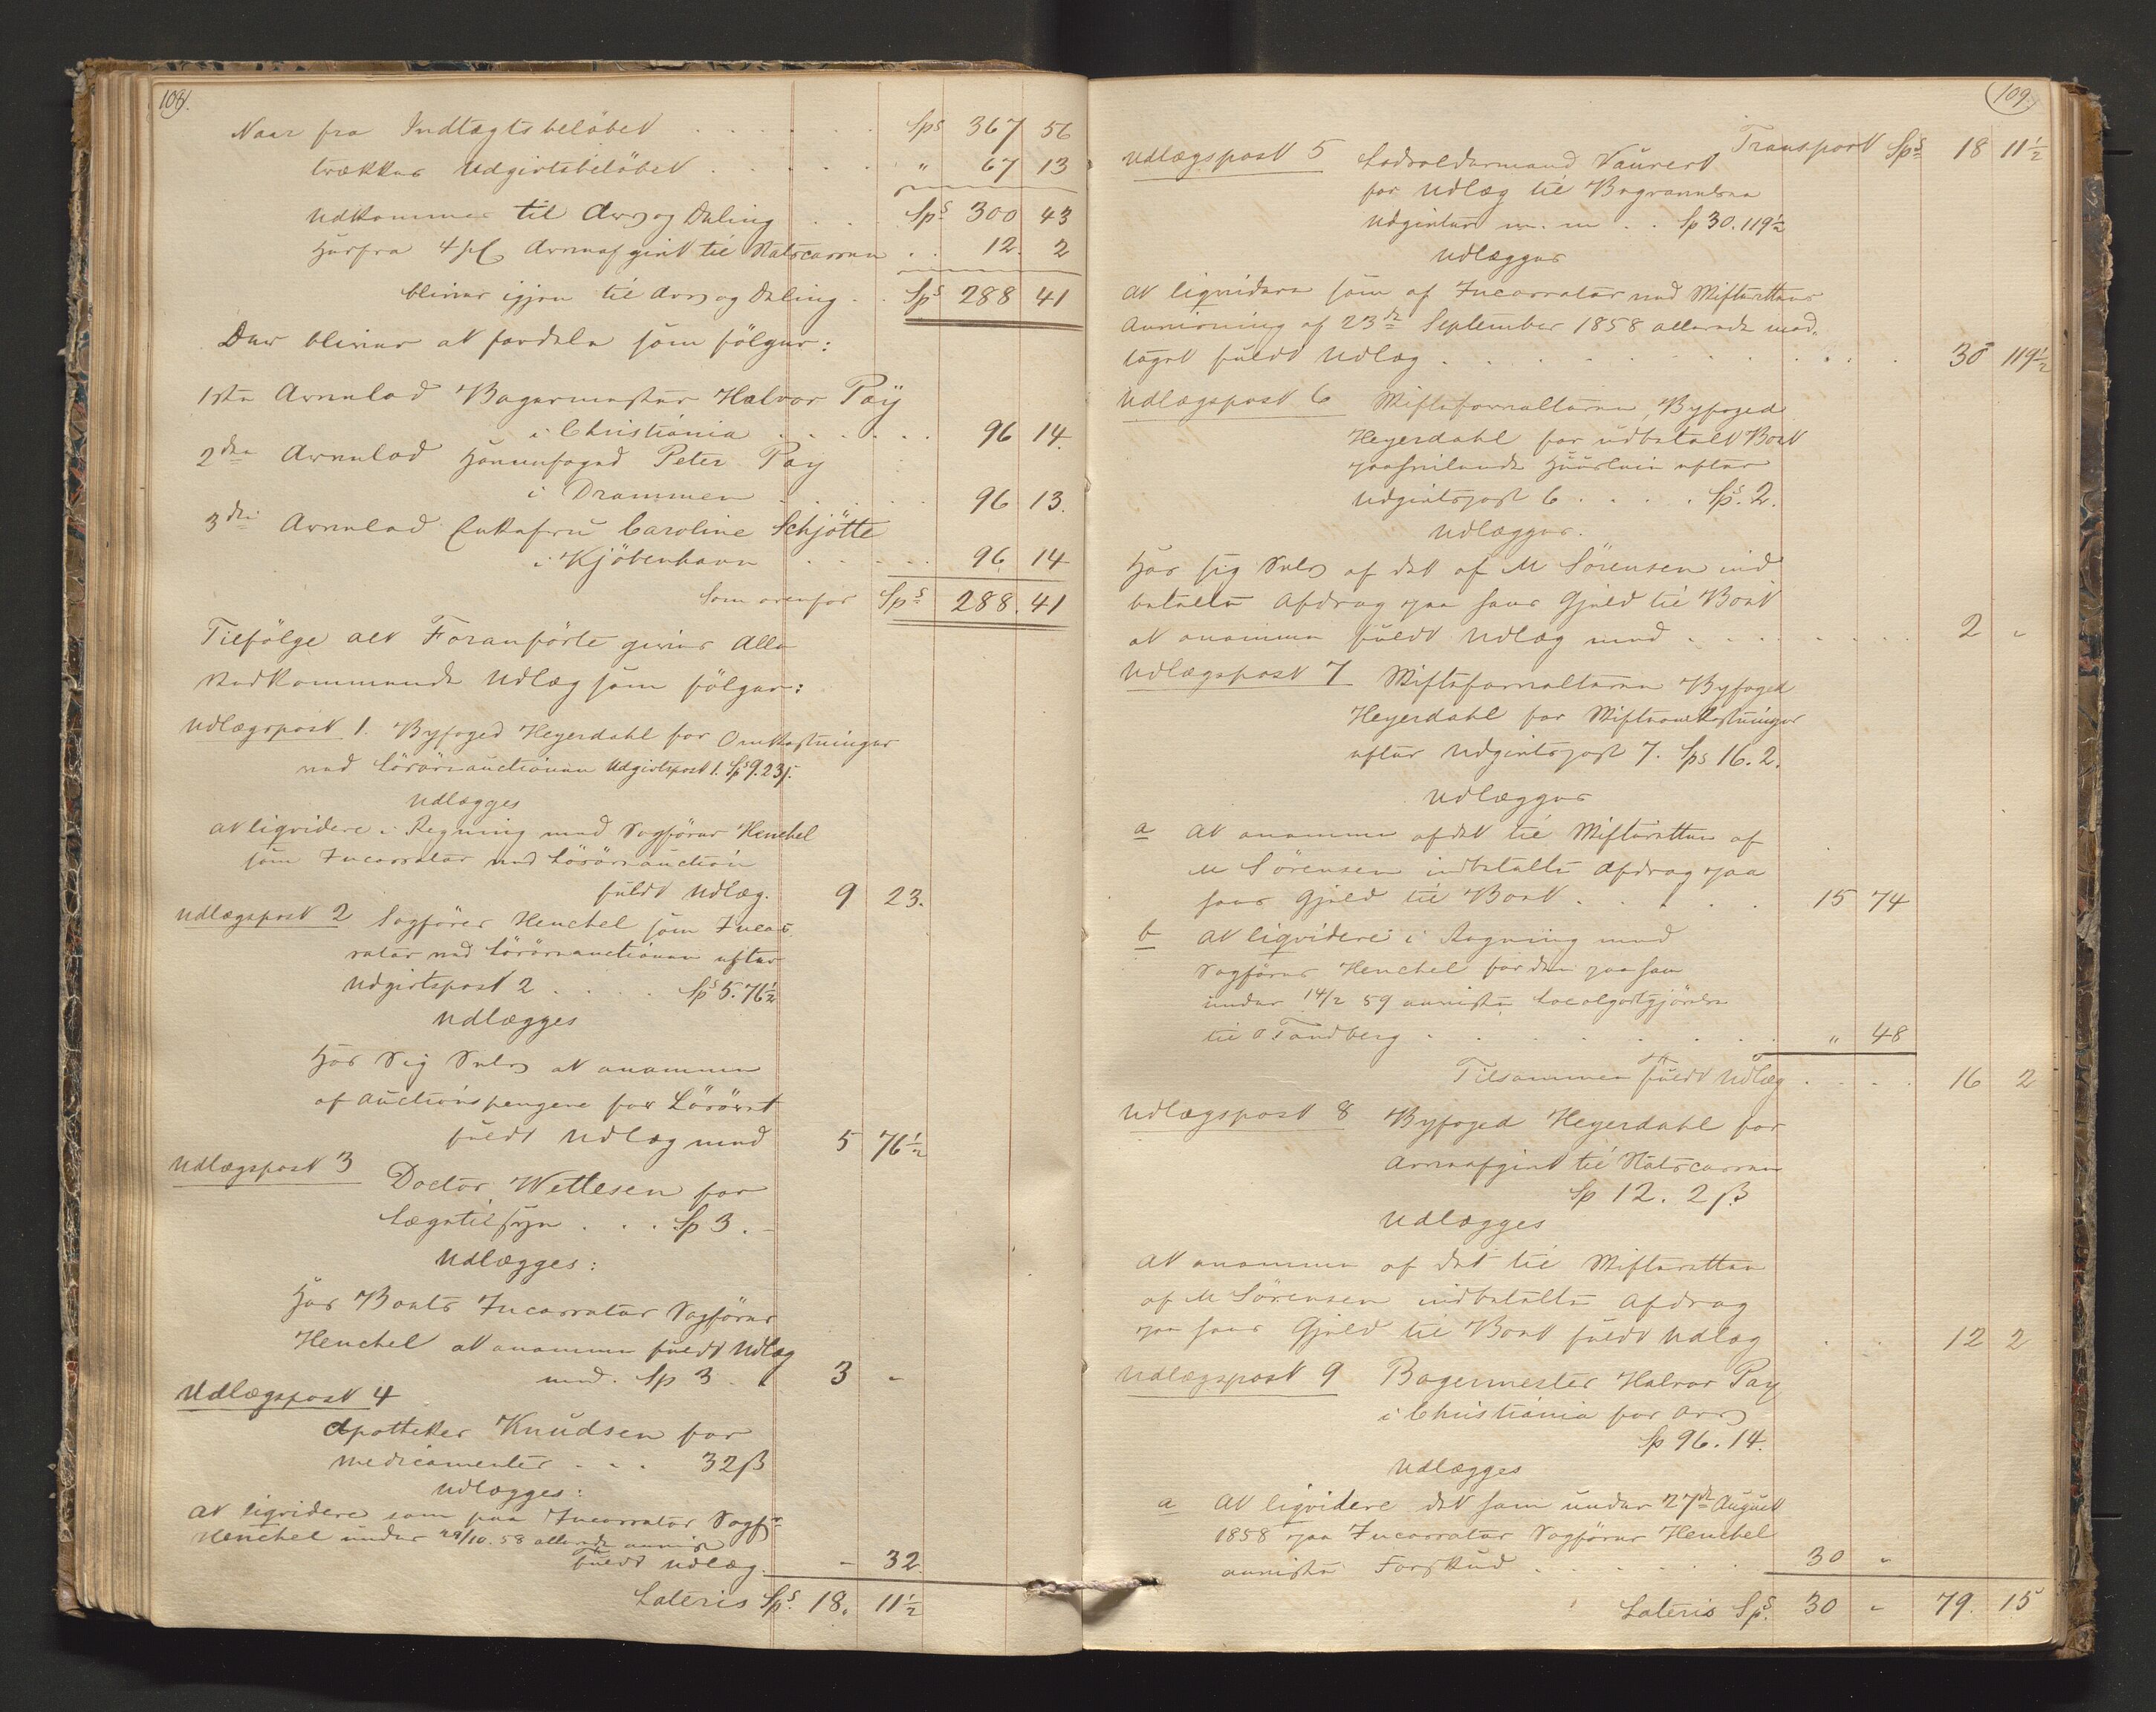 108.
Naar fra Indtægtsbeløbet . . . . . . Sps 367 56
trækkes Udgivtsbeløbet . . . . . " 67 13
udkommer til Arv og Deling . . Sps 300 43
Herfra 4 pC Arveafgivt til Statscassen . . 12. 2
bliver igjen til Arv og Deling . . Sps 288 41
Der bliver at fordele som følger:
1ste Arvelod Bagermester Halvor Päy
i Christiania . . . . . . 96 14.
2den Arvelod Havnefoged Peter Pay
i Drammen . . . . . 96 13.
3die Arvelod Enkefru Caroline Schjötte
i Kjöbenhavn . . . . . 96 14
Som ovenfor Sps 288. 41
Tilfölge alt Foranförte gives alle
Vedkommende Udlæg som fölger:
Udlægspost 1. Byfoged Heyerdahl for Omkostninger
ved Lösöreauctionen Udgivtspost 1. Sps 9. 23ß.
Udlægges
at liqvidere i Regning med Sagförer Henchel
som Incassator ved Lösöreauction
fuldt Udlæg. 9 23.
Udlægspost 2 Sagförer Henchel som Incas-
sator ved Lösöreauctionen efter
Udgivtspost 2 . . . . Sps 5. 76½
Udlægges
Hos Sig Selv at annamme
af Auctionspengene for Lösöret
fuldt Udlæg med 5 76½
Udlægspost 3 Doctor Wettesen for
Lægetilsyn . . . Sp 3. -
Udlægges:
Hos Boets Incassator Sagförer
Henchel at annamme fuldt Udlæg
med. Sp 3. . 3 -
Udlægspost 4
Apotheker Knudsen for
medicamenter . . . 32ß
Udlægges:
At liqvidere som paa Incassator Sagfr
Henchel under 29/10. 58 allerede anvist
fuldt Udlæg. - 32.
Lateris Sps. 18. 11½
109.
Transport Sps 18 11½
Udlægspost 5 Lodsoldermand Vaurert
for Udlæg til Begravelses
Udgivter m. m . . Sp 30. 119½
Udlægges
at liqvidere som af Incassator med Skifterettens
Anvisning af 23de September 1858 allerede mod-
taget fuldt Udlæg . . . . . . . . 30 119½
Udlægspost 6 Skifteforvalteren, Byfoged
Heyerdahl for udbetalt Boet
paahvilende Huusleie efter
Udgivtspost 6 . . . . Sps. 2.
Udlægges.
Hos sig Selv af det af M Sörensen ind
betalte Afdrag paa hans Gjæld til Boet
at annamme fuldt Udlæg med . . . . . . 2 -
Udlægspost 7 Skifteforvalteren Byfoged
Heyerdahl for Skifteomkostninger
efter Udgivtspost 7. Sps 16. 2.
Udlægges
a At annamme af det til Skifteretten af
M Sörensen indbetalte Afdrag paa
hans Gjæld til Boet . . . . . 15 74
b At liqvidere i Regning med
Sagförer Henchel for den paa ham
under 14/2 59 anviste
til O Tandberg . . . . . . . " 48
Tilsammen fuldt Udlæg . . . . 16 2
Udlægspost 8 Byfoged Heyerdahl for
Arveafgivt til Statscassen
Sp 12. 2ß
Udlægges
At annamme af det til Skifteretten
af M Sörensen indbetalte Afdrag
paa hans Gjæld til Boet fuldt Udlæg . . 12 2
Udlægspost 9 Bagermester Halvor Pay
i Christiania for Arv
Sp 96. 14.
Udlægges
a At liqvidere det ham under 27de August
1858 paa Incassator Sagförer Henchel
anviste Forskud . . . . . 30 -
Lateris Sps. 30 - 79. 15